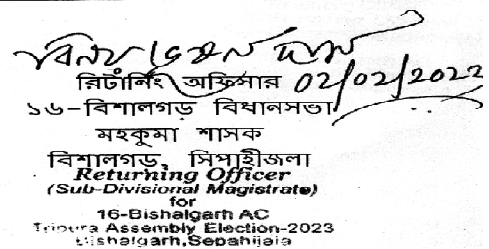 বিনয় ভূষণ দাস
রিটার্নিং অফিসার 02/02/2023
১৬-বিশালগড় বিধানসভা
মহকুমা শাসক
বিশালগড়, সিপাহীজলা
Returning Officer
(Sub-Divisional Magistrate)
for
16-Bishalgarh AC
Tripura Assembly Election-2023
Bishalgarh,Sepahijala